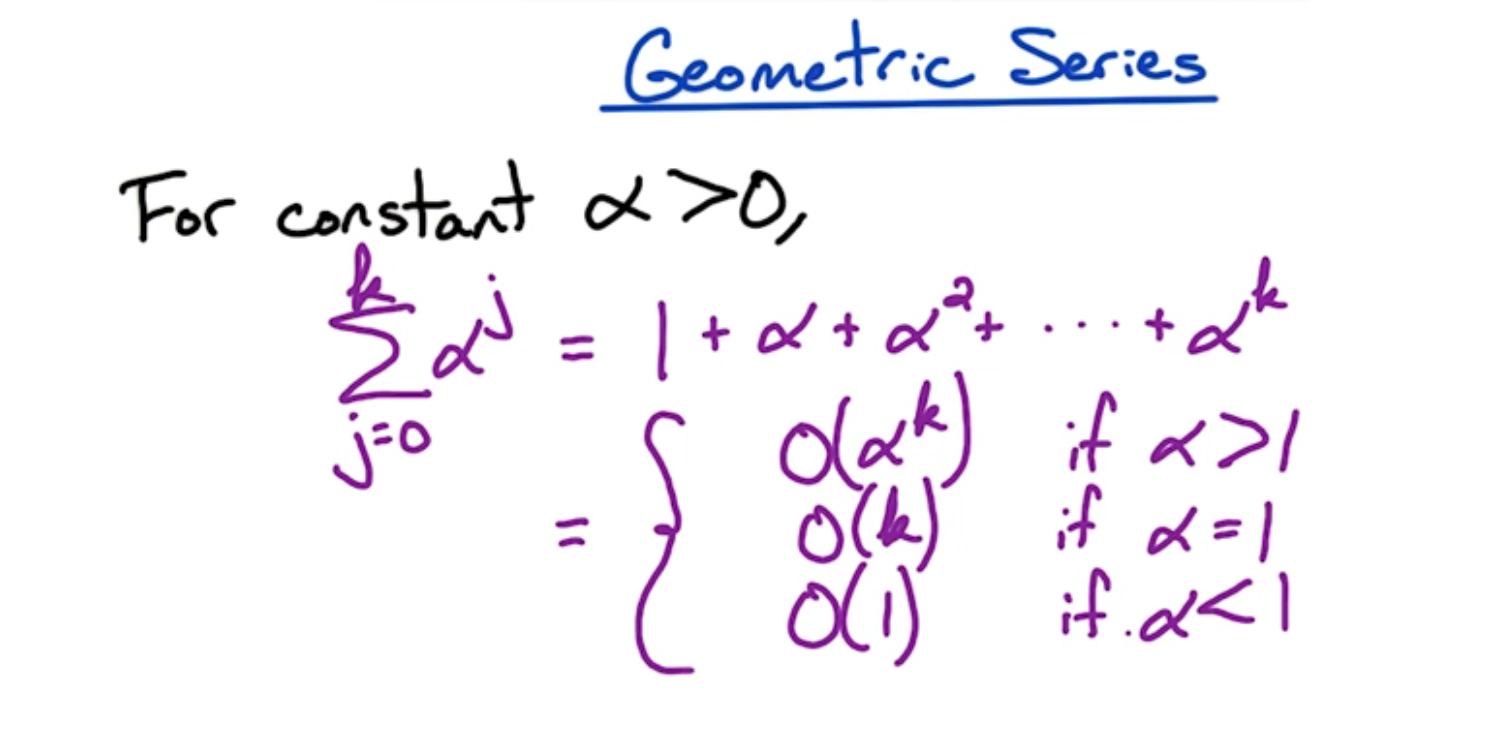 Geometric Series
For constant α>0,
∑_{j=0}^{k} α^j = 1 + α + α^2 + ···· + α^k
= { O(α^k) if α>1
O(k) if α=1
O(1) if α<1